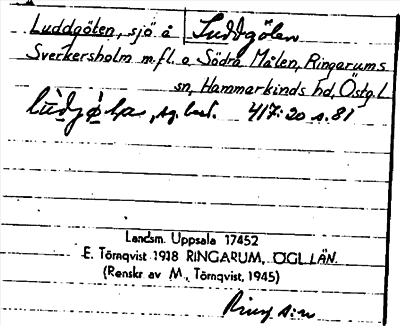 Luddgölen, sjö å Luddgölen
Sverkersholm m.fl. o Södra Målen, Ringarums
sn, Hammarkinds hd, Östg.L
sg. best. 417:20 s. 81
Landsm. Uppsala 17452
E. Törnqvist 1918 RINGARUM, ÖGL. LÄN.
(Renskr av M. Törnqvist, 1945)